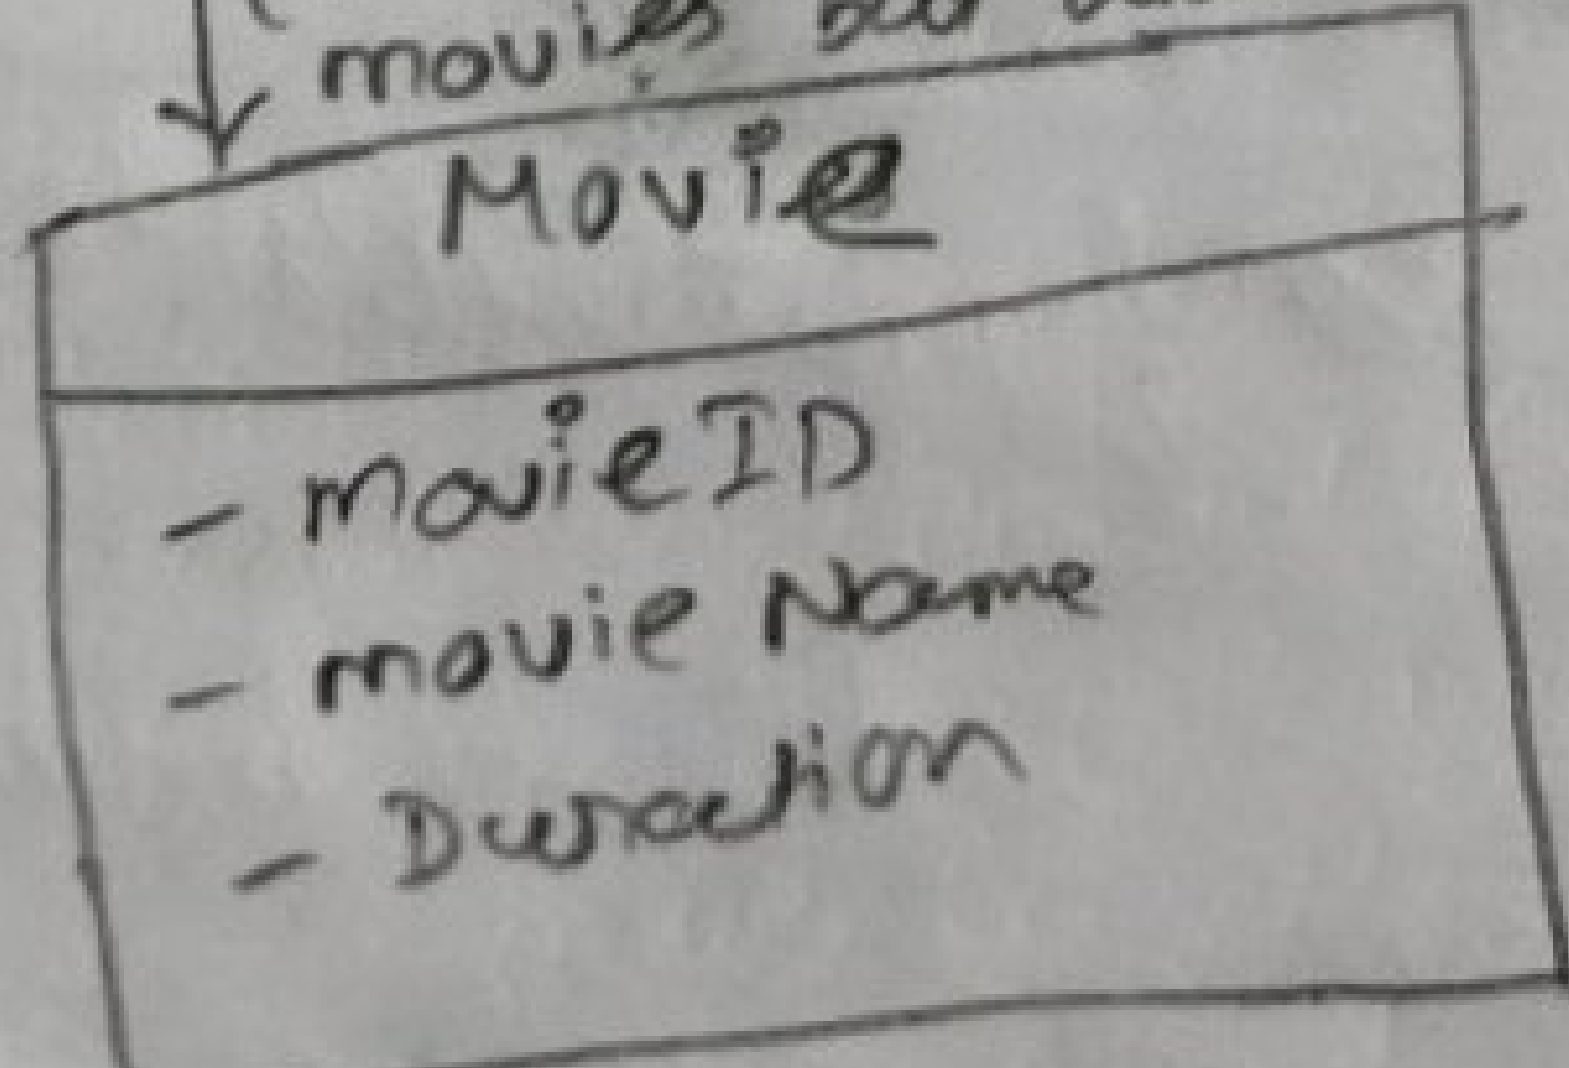 movies
Movie
- movieID
- movie Name
- Duration